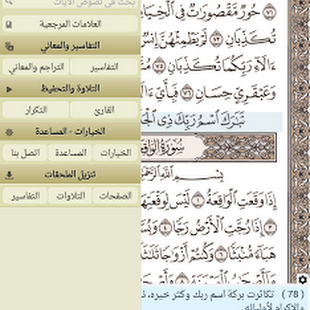 حُورٌ مَّقْصُورَٰتٌ فِى ٱلْخِيَا
تُكَذِّبَانِ ٧٣ لَمْ يَطْمِثْهُنَّ إِنسٌ
ءَالَآءِ رَبِّكُمَا تُكَذِّبَانِ ٧٥
وَعَبْقَرِىٍّ حِسَانٍ ٧٦ فَبِأَىِّ ءَا
تَبَٰرَكَ ٱسْمُ رَبِّكَ ذِى ٱلْجَ
سُورَةُ ٱلْوَاقِ
بِسْمِ ٱللَّهِ ٱلرَّحْمَٰنِ
إِذَا وَقَعَتِ ٱلْوَاقِعَةُ ١ لَيْسَ لِوَقْعَتِهَا
٣ إِذَا رُجَّتِ ٱلْأَرْضُ رَجًّا ٤
هَبَآءً مُّنۢبَثًّا ٦ وَكُنتُمْ أَزْوَٰجًا ثَلَٰثَةً
( 78 ) تكاثرت بركة اسم ربك وكثر خيره، ذ
والإكرام لأوليائه.
بحث في نصوص الآيات
العلامات المرجعية
التفاسير والمعاني
التفاسير
التراجم والمعاني
التلاوة والتحفيظ
القارئ
التكرار
الخيارات - المساعدة
الخيارات
المساعدة
اتصل بنا
تنزيل الملحقات
الصفحات
التلاوات
التفاسير